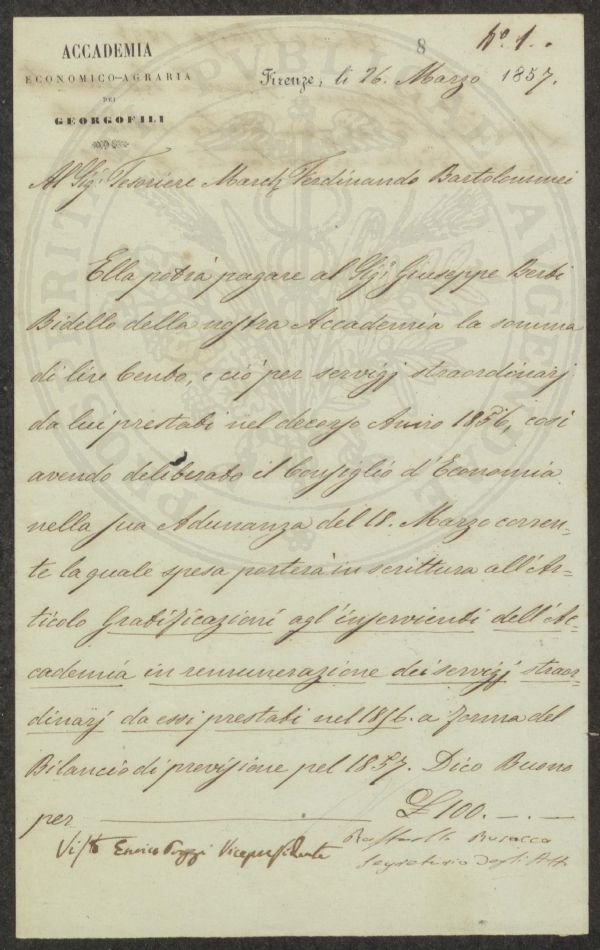 8
N.o 1.
ACCADEMIA
ECONOMICO-AGRARIA
DEI
GEORGOFILI
Firenze, li 26. Marzo 1857.
Al Sig: Tesoriere March: Ferdinando Bartolommei
Ella potrà pagare al Sig: Giuseppe Berti
Bidello della nostra Accademia la somma
di lire Cento, e ciò per servigj straordinarj
da lui prestati nel decorso Anno 1856, così
avendo deliberato il Consiglio d'Economia
nella sua Adunanza del 18. Marzo corren=
te la quale spesa porterà in scrittura all'Ar=
ticolo Gratificazioni agl'inservienti dell'Ac=
cademia in remunerazione dei servigj straor=
dinarj da essi prestati nel 1856. a forma del
Bilancio di previsione pel 1857. Dico Buono
per £ 100. — . —
Visto Enrico Poggi Vicepresidente
Raffaello Busacca
Segretario degli Atti